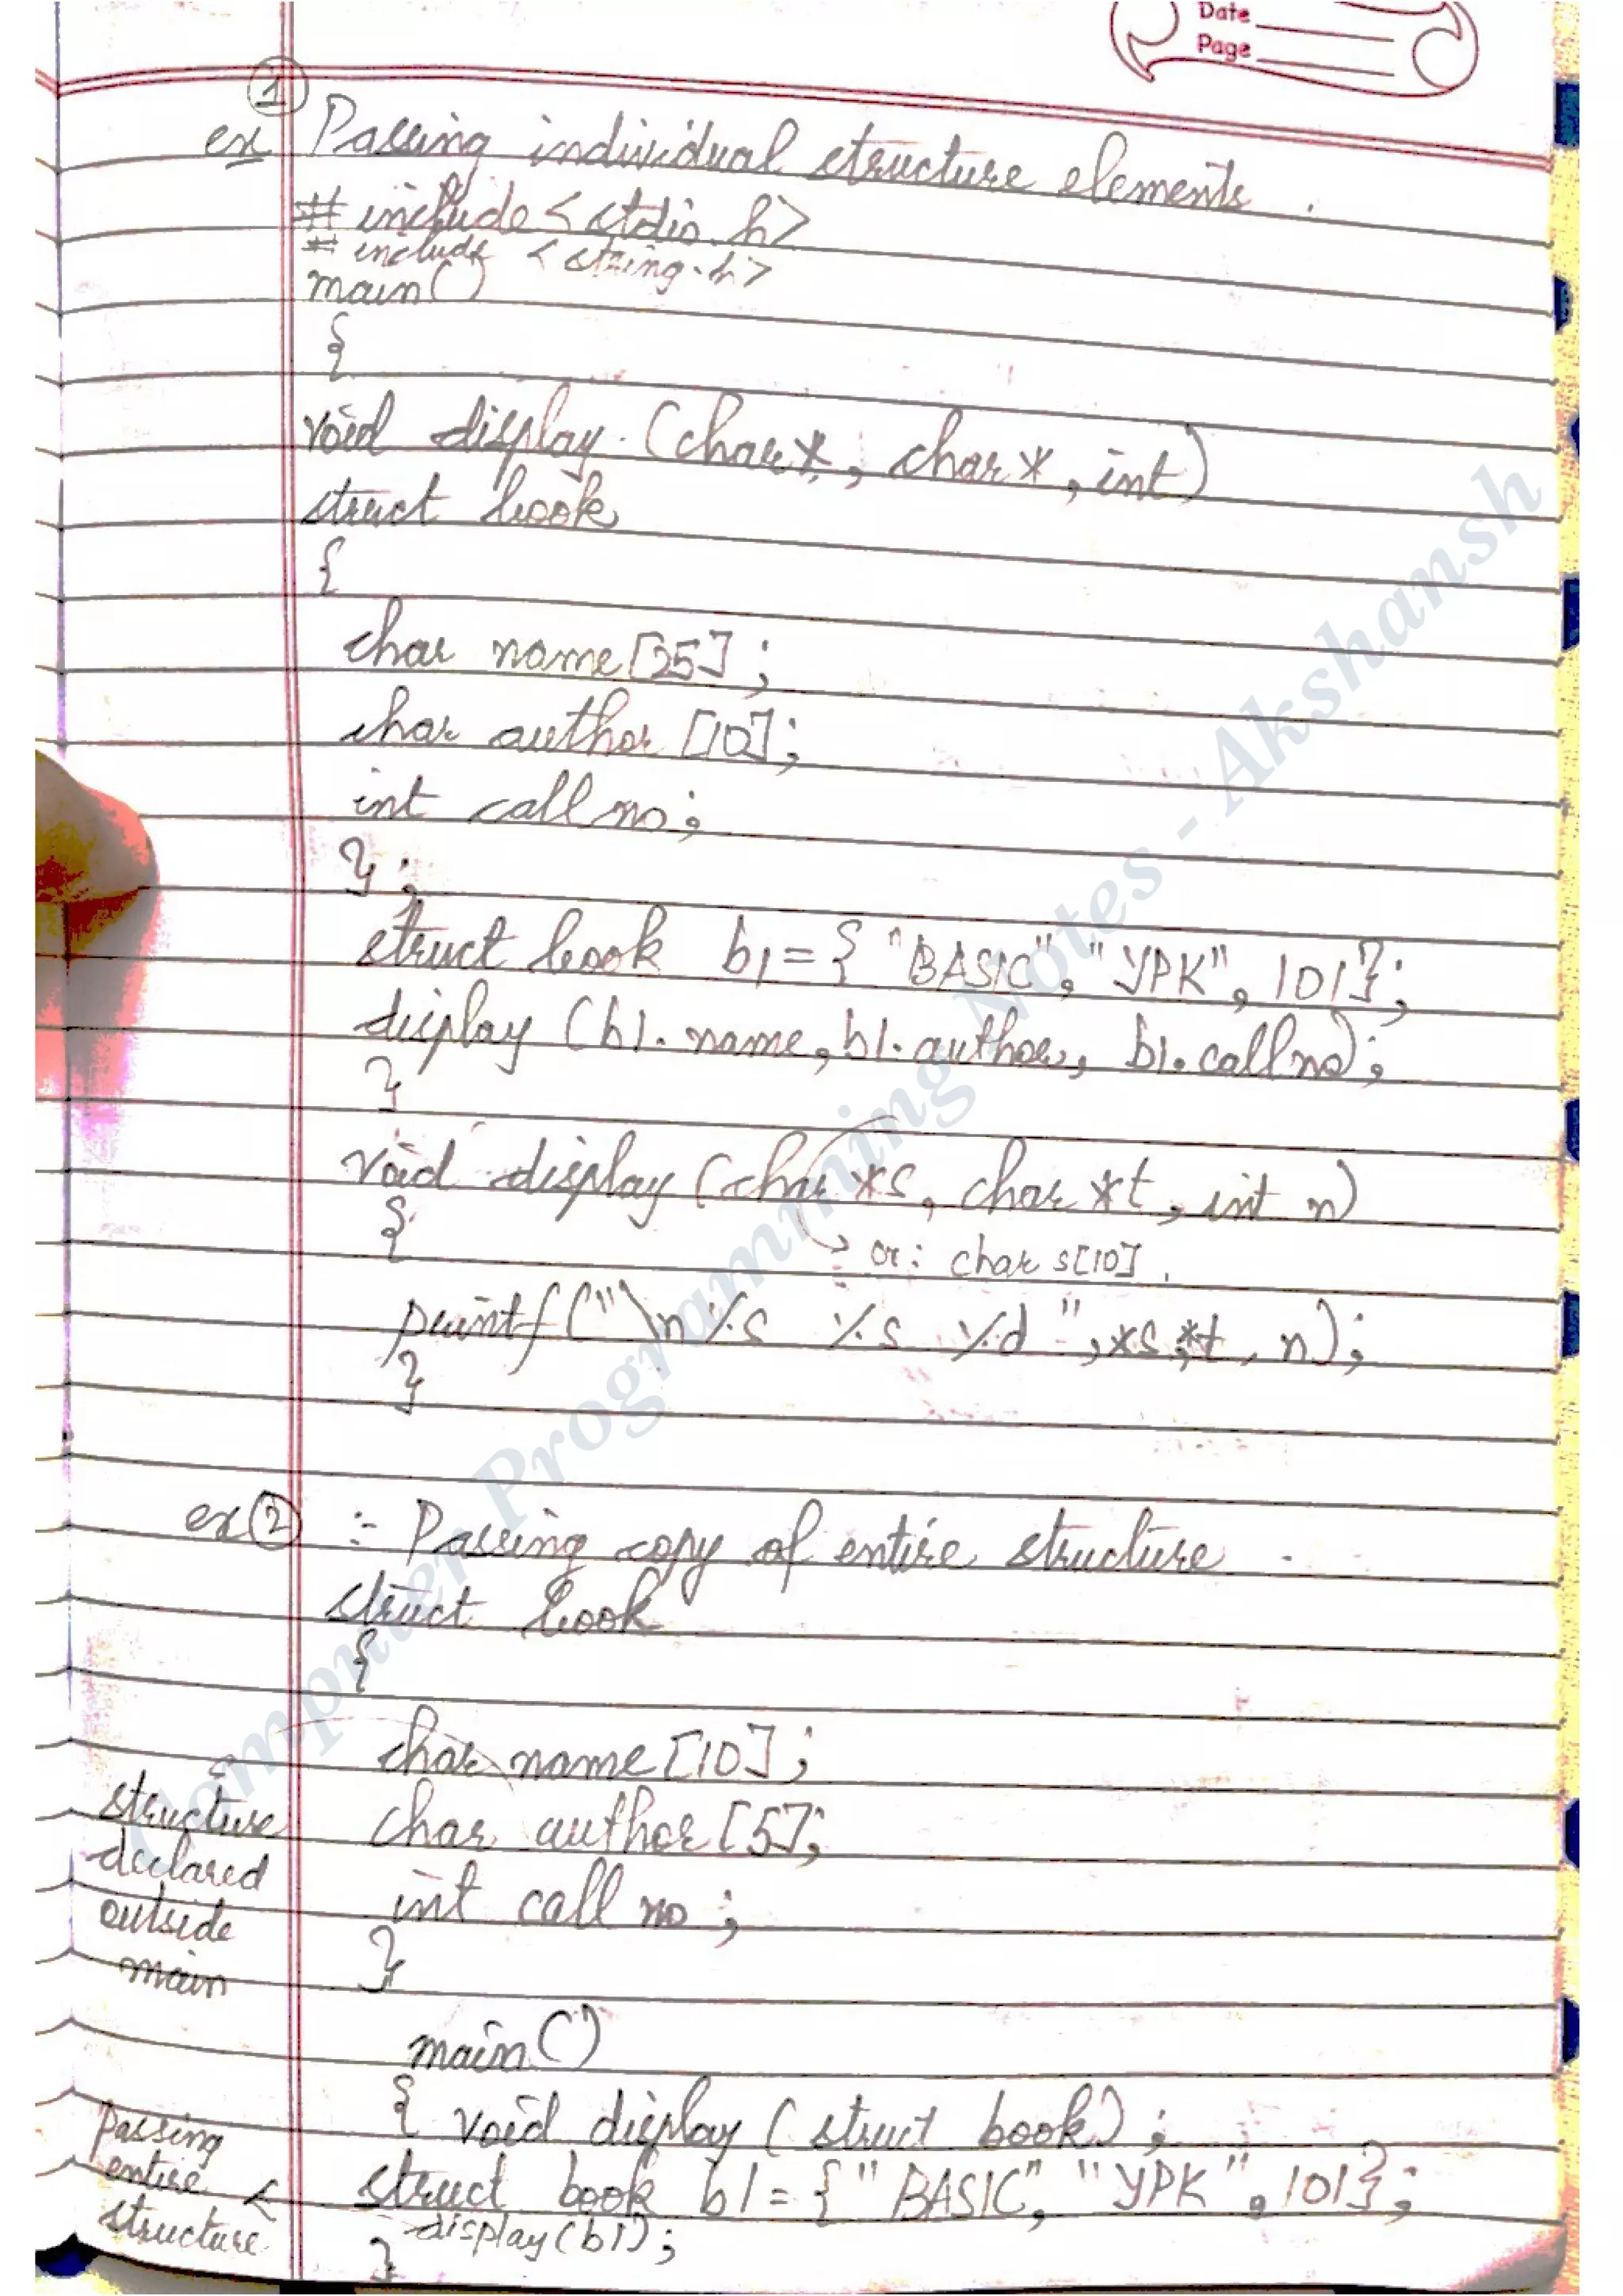 Date
Page
1
ex Passing individual structure elements.
# include <stdio.h>
# include <string.h>
main()
{
void display (char*, char*, int)
struct book
{
char name[25];
char author [10];
int call no;
};
struct book b1 = { "BASIC", "YPK", 101};
display (b1.name, b1.author, b1.call no);
}
void display (char *s, char *t, int n)
{
or: char s[10].
printf("\n %s %s %d ", *s, *t, n);
}
ex 2 :- Passing copy of entire structure.
struct book
{
char name [10];
char author [5];
int call no;
}
structure
declared
outside
main
main()
{ void display ( struct book);
struct book b1 = { "BASIC", "YPK", 101};
display (b1);
}
Passing
entire <
structure
Computer Programming Notes - Akshansh